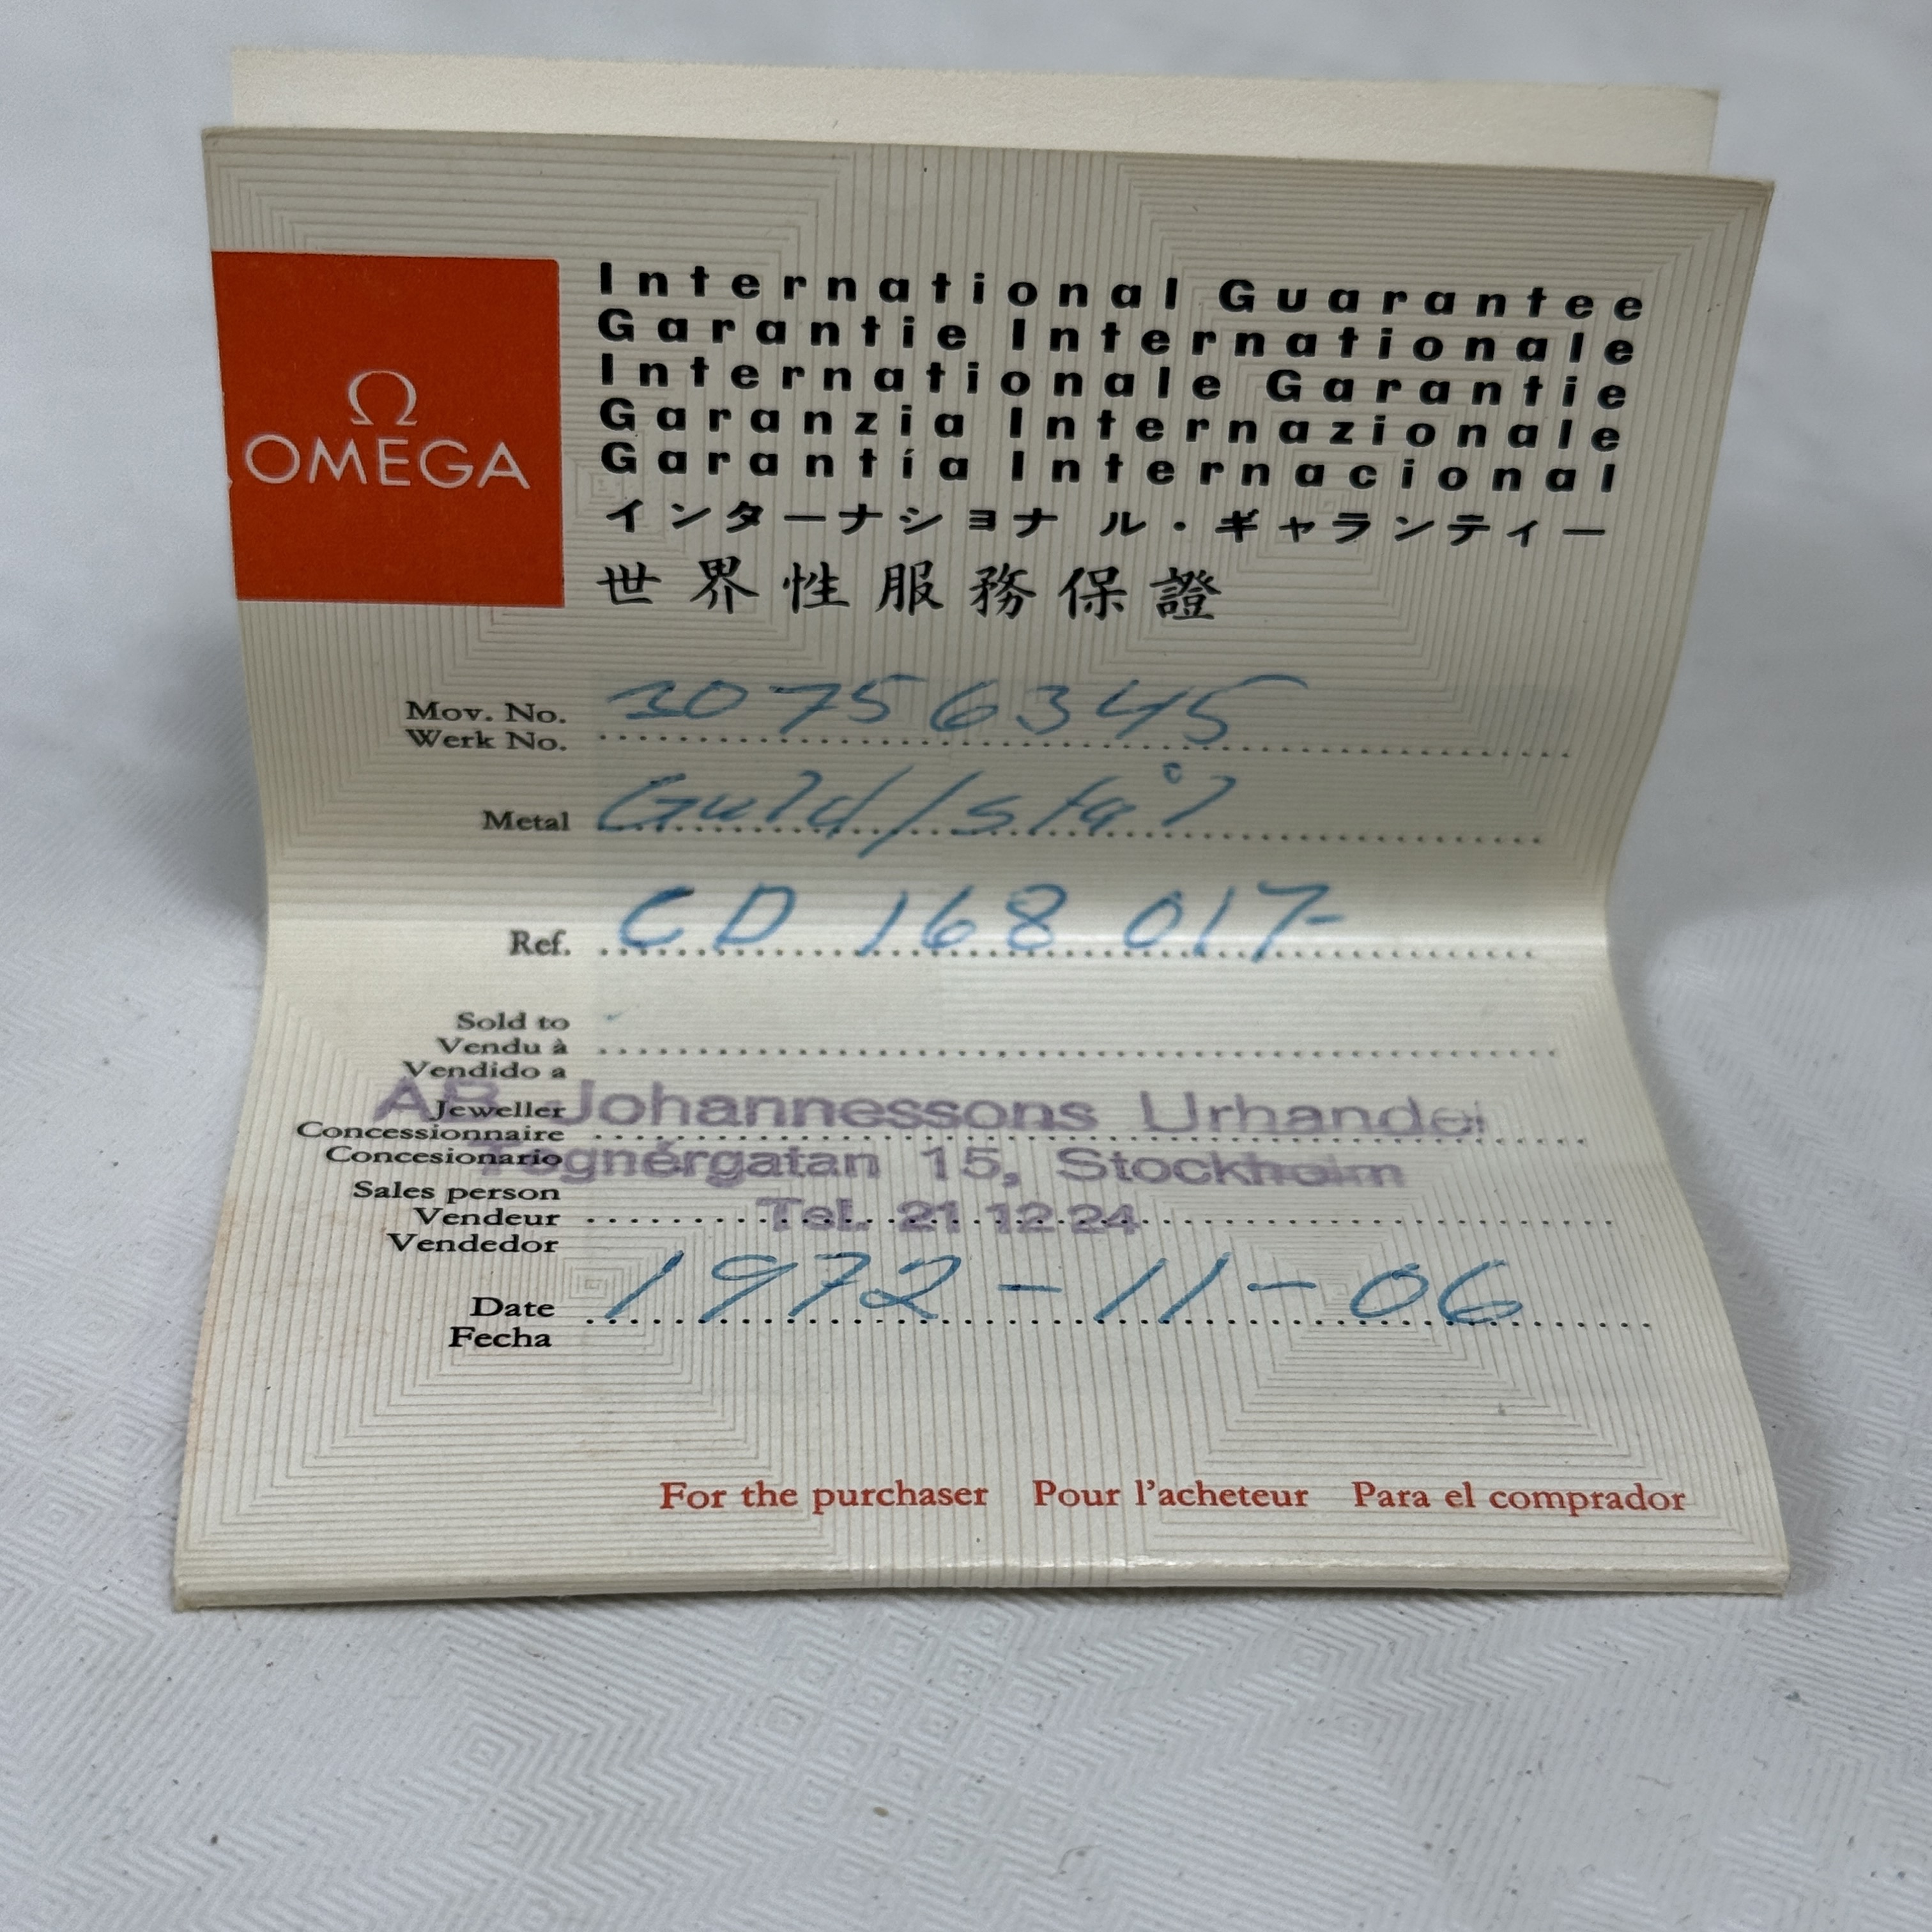 Ω
OMEGA
International Guarantee
Garantie Internationale
Internationale Garantie
Garanzia Internazionale
Garantía Internacional
インターナショナル・ギャランティー
世界性服務保證
Mov. No. 30756345
Werk No.
Metal Guld/stål
Ref. CD 168 017
Sold to
Vendu à
Vendido a
AB Johannessons Urhandel
Jeweller
Concessionnaire
Concesionario
Tegnérgatan 15, Stockholm
Sales person
Vendeur
Tel. 21 12 24
Vendedor
Date 1972-11-06
Fecha
For the purchaser Pour l'acheteur Para el comprador